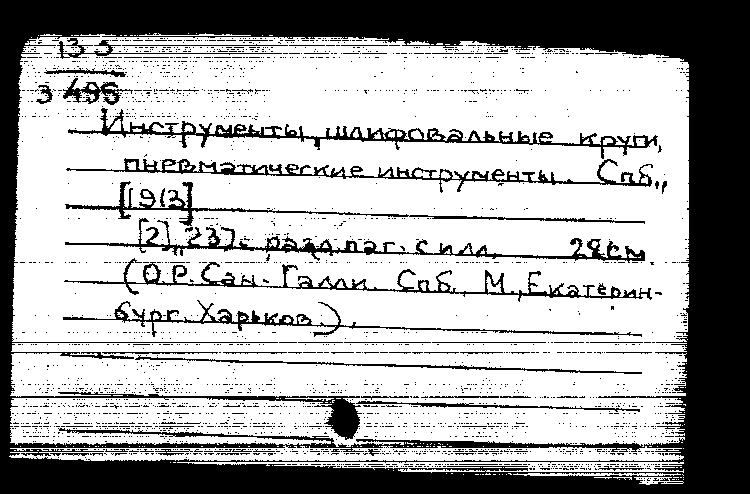 13 5
3 496
Инструменты, шлифовальные круги,
пневматические инструменты. Спб.,
[1913]
[2], 237 с разд. паг. с илл. 28 см.
(О.Р. Сан-Галли. Спб., М., Екатерин-
бург, Харьков.).